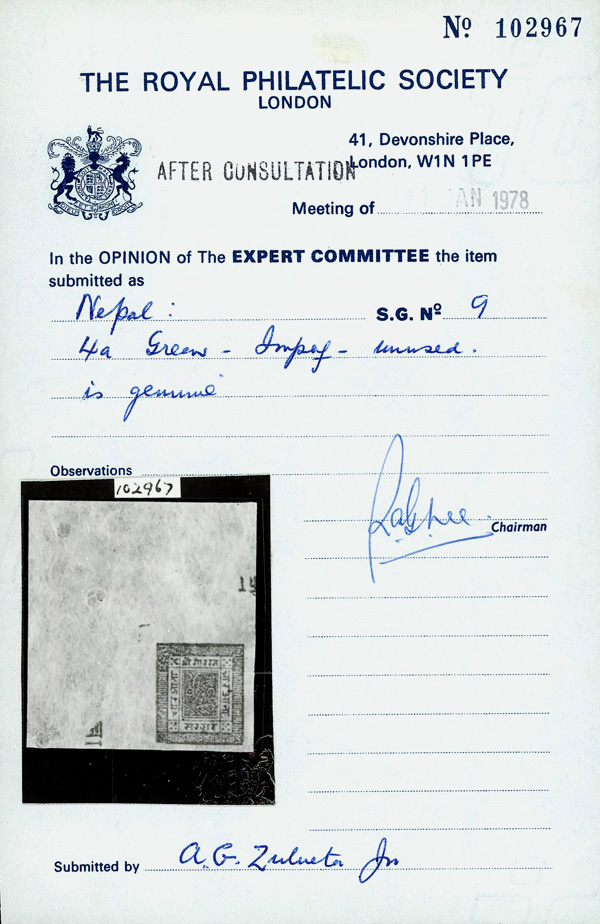 Nº 102967
THE ROYAL PHILATELIC SOCIETY
LONDON
41, Devonshire Place,
AFTER CONSULTATION London, W1N 1PE
Meeting of JAN 1978
In the OPINION of The EXPERT COMMITTEE the item
submitted as
Nepal: S.G. Nº 9
4a Green - Imperf - unused.
is genuine
Observations
102967
Chairman
Submitted by A. G. Zulueta Jr